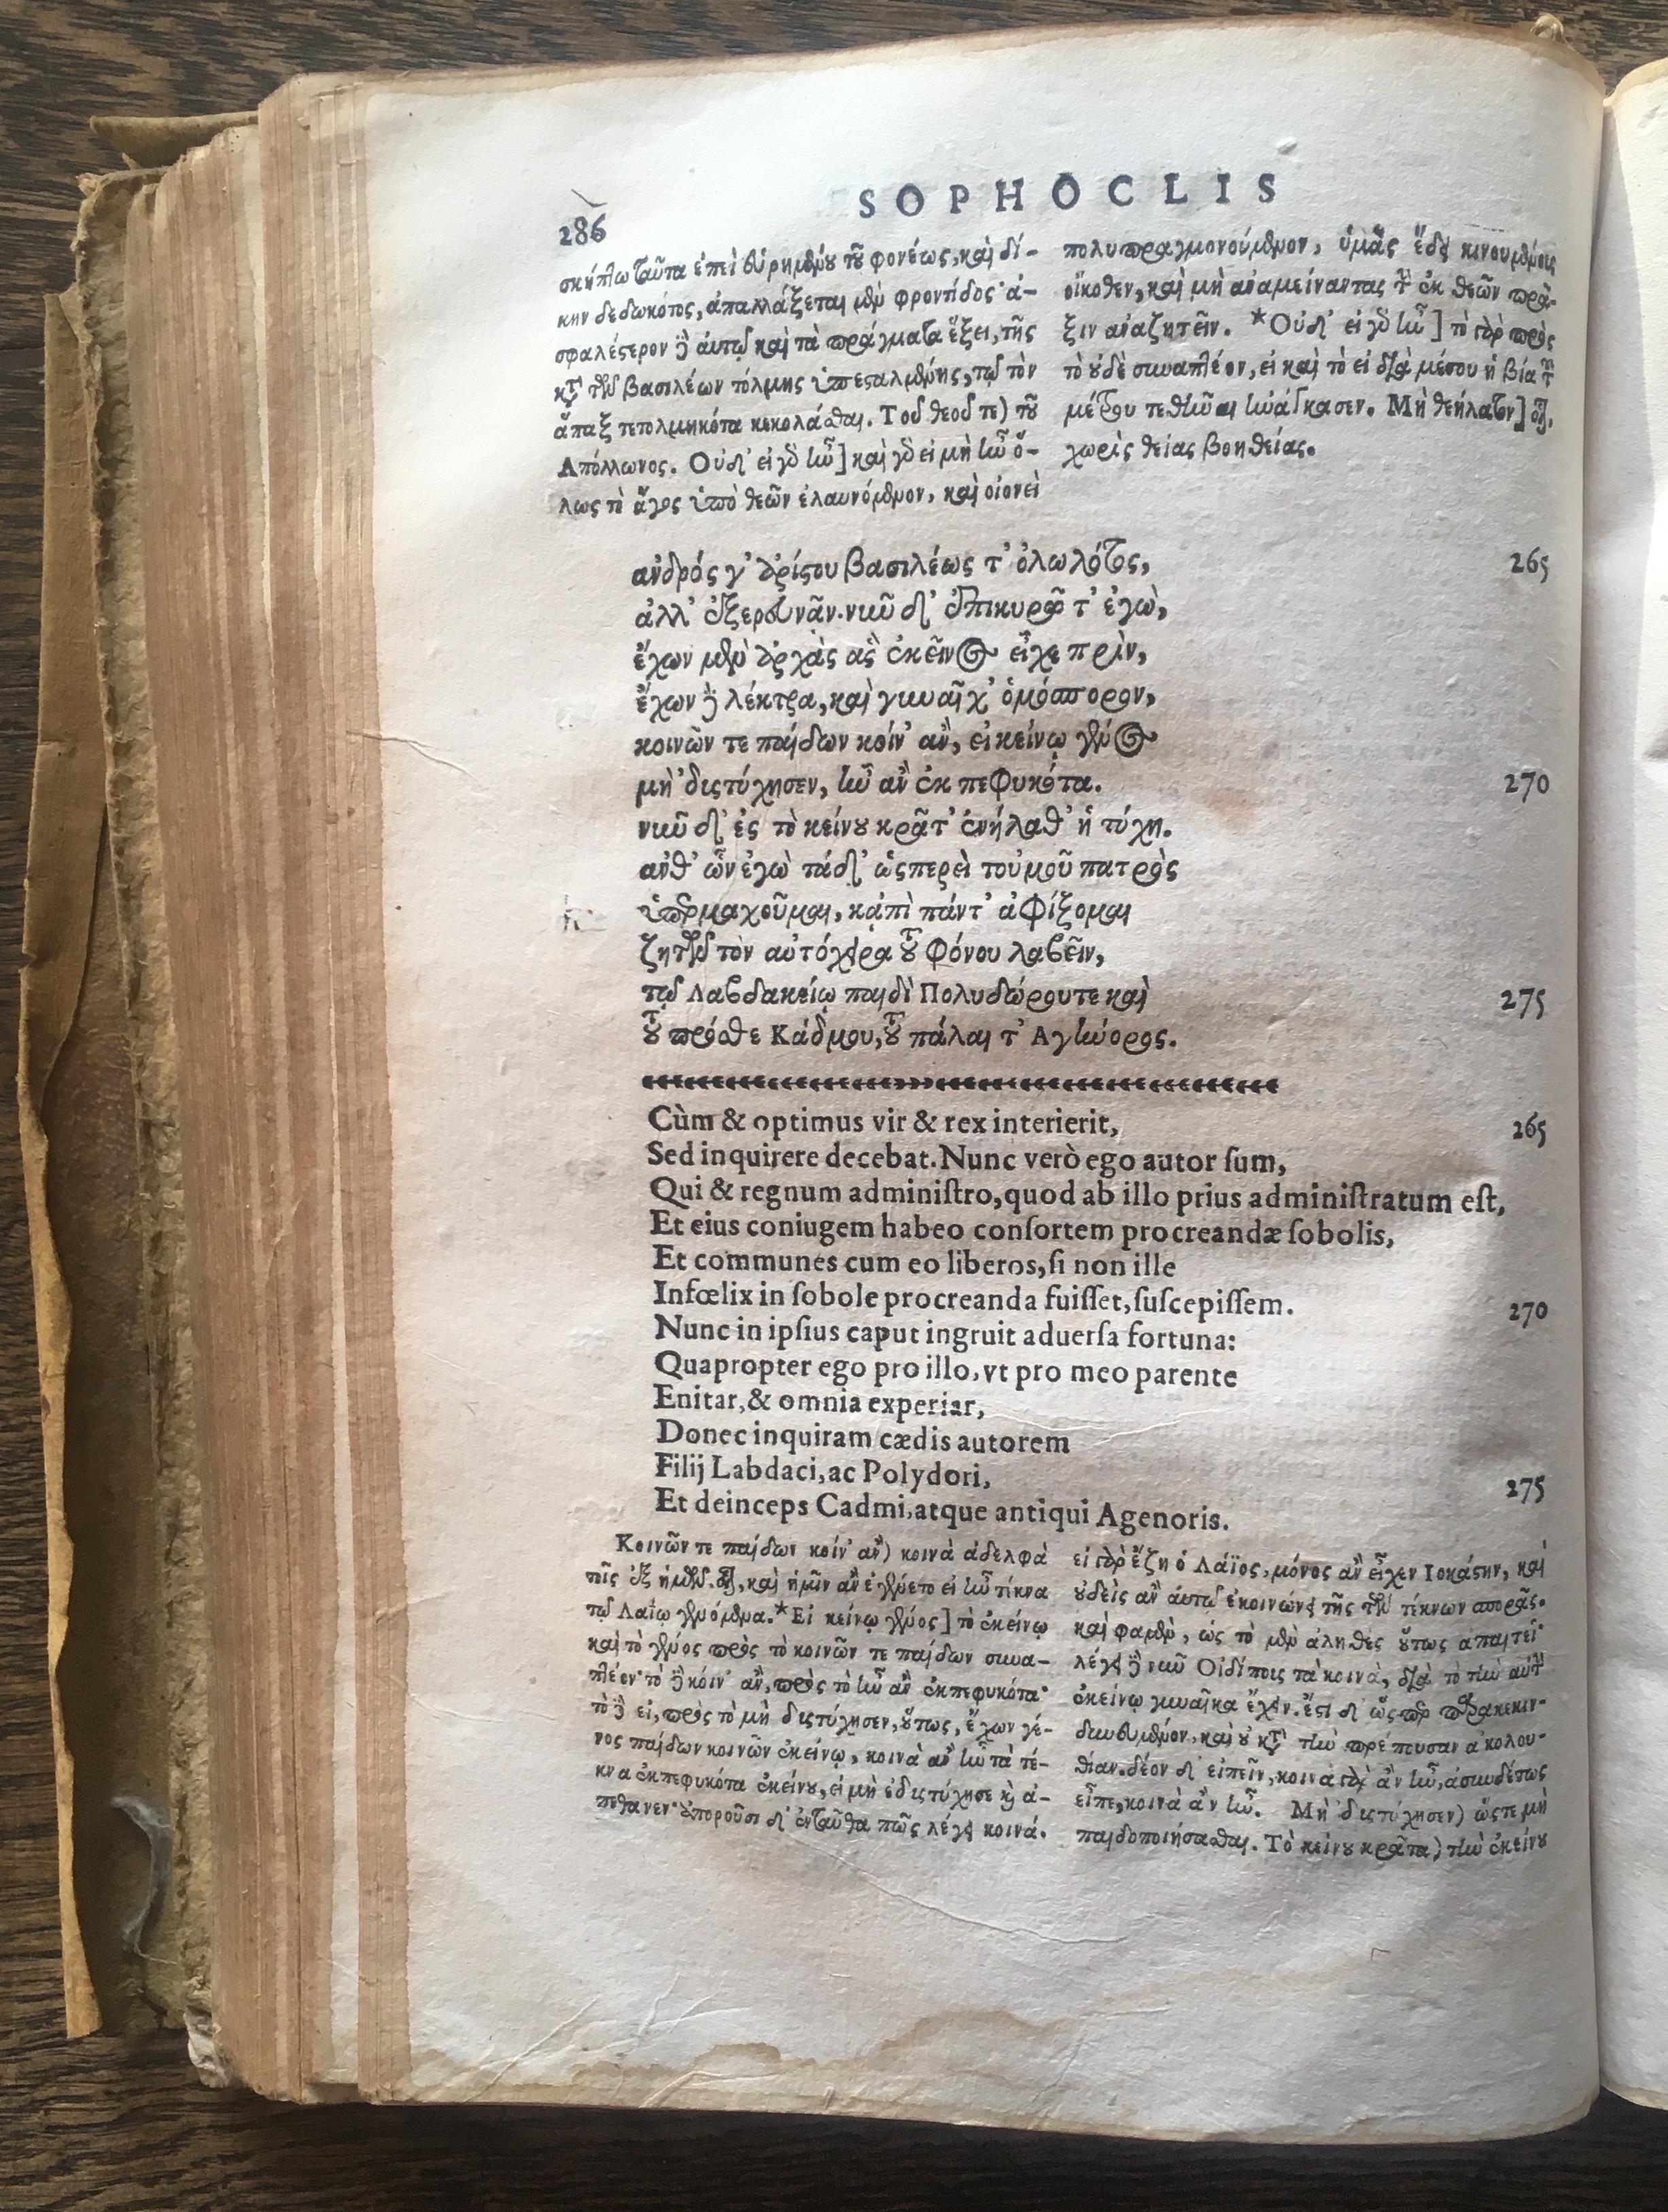 286
SOPHOCLIS
σκήπτω ταῦτα ἐπεὶ εὑρημένου τοῦ φονέως, καὶ δί-
κην δεδωκότος, ἀπαλλάξεται μὲν φροντίδος· ἀ-
σφαλέστερον δὲ αὐτῷ καὶ τὰ πράγματα ἕξει, τῆς
κατὰ τῶν βασιλέων τόλμης ὑπεσταλμένης, τῷ τὸν
ἅπαξ τετολμηκότα κεκολάσθαι. Τοῦ θεοῦ τε) τοῦ
Απόλλωνος. Οὐδ' εἰ γὸ ἦν] καὶ γὸ εἰ μὴ ἦν ὅ-
λως τὸ ἄγος ὑπὸ θεῶν ἐλαυνόμενον, καὶ οἱονεὶ
πολυπραγμονούμενον, ὑμᾶς ἔδει κινουμένους
οἴκοθεν, καὶ μὴ ἀναμείναντας τὴν ἐκ θεῶν πρᾶ-
ξιν ἀναζητεῖν. *Οὐδ' εἰ γὸ ἦν] τὸ γὰρ πρὸς
τὸ οὐδὲ συναπτέον, εἰ καὶ τὸ εἰ διὰ μέσου ἡ βία τοῦ
μέτρου τεθῆναι ἠνάγκασεν. Μὴ θεήλατον]
χωρὶς θείας βοηθείας.
ἀνδρός γ' ἀρίστου βασιλέως τ' ὀλωλότος, 265
ἀλλ' ἐξερευνᾶν. νῦν δ' ἐπικυρῶ τ' ἐγὼ,
ἔχων μὲν ἀρχὰς ἃς ἐκεῖνος εἶχε πρὶν,
ἔχων δὲ λέκτρα, καὶ γυναῖχ' ὁμόσπορον,
κοινῶν τε παίδων κοίν' ἂν, εἰ κείνῳ γένος
μὴ 'δυςτύχησεν, ἦν ἂν ἐκπεφυκότα. 270
νῦν δ' ἐς τὸ κείνου κρᾶτ' ἐνήλαθ' ἡ τύχη.
ἀνθ' ὧν ἐγὼ τάδ' ὡςπερεὶ τοὐμοῦ πατρὸς
ὑπερμαχοῦμαι, κἀπὶ πάντ' ἀφίξομαι
ζητῶν τὸν αὐτόχειρα τοῦ φόνου λαβεῖν,
τῷ Λαβδακείῳ παιδὶ Πολυδώρου τε καὶ 275
τοῦ πρόσθε Κάδμου, τοῦ πάλαι τ' Αγήνορος.
Cùm & optimus vir & rex interierit, 265
Sed inquirere decebat. Nunc verò ego autor ſum,
Qui & regnum adminiſtro, quod ab illo prius adminiſtratum eſt,
Et eius coniugem habeo conſortem procreandæ ſobolis,
Et communes cum eo liberos, ſi non ille
Infœlix in ſobole procreanda fuiſſet, ſuſcepiſſem. 270
Nunc in ipſius caput ingruit aduerſa fortuna:
Quapropter ego pro illo, vt pro meo parente
Enitar, & omnia experiar,
Donec inquiram cædis autorem
Filij Labdaci, ac Polydori, 275
Et deinceps Cadmi, atque antiqui Agenoris.
Κοινῶν τε παίδων κοίν' ἂν) κοινὰ ἀδελφὰ
τοῖς ἐξ ἡμῶν. καὶ ἡμῖν ἂν ἐγένετο εἰ ἦν τέκνα
τῷ Λαΐῳ γενόμενα. *Εἰ κείνῳ γένος] τὸ ἐκείνῳ
καὶ τὸ γένος πρὸς τὸ κοινῶν τε παίδων συνα-
πτέον· τὸ δὲ κοίν' ἂν, πρὸς τὸ ἦν ἂν ἐκπεφυκότα·
τὸ δὲ εἰ, πρὸς τὸ μὴ δυςτύχησεν, οὕτως, ἔχων γέ-
νος παίδων κοινῶν ἐκείνῳ, κοινὰ ἂν ἦν τὰ τέ-
κνα ἐκπεφυκότα ἐκείνου, εἰ μὴ ἐδυςτύχησε καὶ ἀ-
πέθανεν· ἀποροῦσι δ' ἐνταῦθα πῶς λέγει κοινά.
εἰ γὰρ ἔζη ὁ Λάϊος, μόνος ἂν εἶχεν Ιοκάστην, καὶ
οὐδεὶς ἂν αὐτῷ ἐκοινώνει τῆς τῶν τέκνων σπορᾶς.
καὶ φαμὲν, ὡς τὸ μὲν ἀληθὲς οὕτως ἀπαιτεῖ·
λέγει δὲ νῦν Οἰδίπους τὰ κοινὰ, διὰ τὸ τὴν αὐτὴν
ἐκείνῳ γυναῖκα ἔχειν. ἔστι δ' ὥςπερ παρακεκιν-
δυνευμένον, καὶ οὐ κατὰ τὴν πρέπουσαν ἀκολου-
θίαν. δέον δ' εἰπεῖν, κοινὰ γὰρ ἂν ἦν, ἀσυνδέτως
εἶπε, κοινὰ ἂν ἦν. Μὴ 'δυςτύχησεν) ὥςτε μὴ
παιδοποιήσασθαι. Τὸ κείνου κρᾶτα) τὴν ἐκείνου